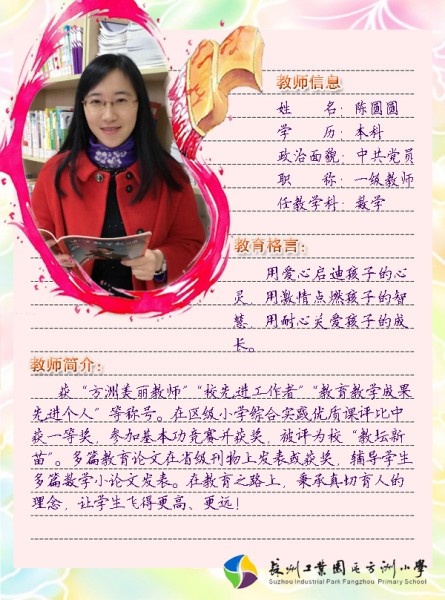 教师信息
姓　　名：陈圆圆
学　　历：本科
政治面貌：中共党员
职　　称：一级教师
任教学科：数学
教育格言：
用爱心启迪孩子的心
灵，用激情点燃孩子的智
慧，用耐心关爱孩子的成
长。
教师简介：
获“方洲美丽教师”“校先进工作者”“教育教学成果
先进个人”等称号。在区级小学综合实践优质课评比中
获一等奖，参加基本功竞赛并获奖，被评为校“教坛新
苗”。多篇教育论文在省级刊物上发表或获奖，辅导学生
多篇数学小论文发表。在教育之路上，秉承真切育人的
理念，让学生飞得更高、更远！
苏州工业园区方洲小学
Suzhou Industrial Park Fangzhou Primary School